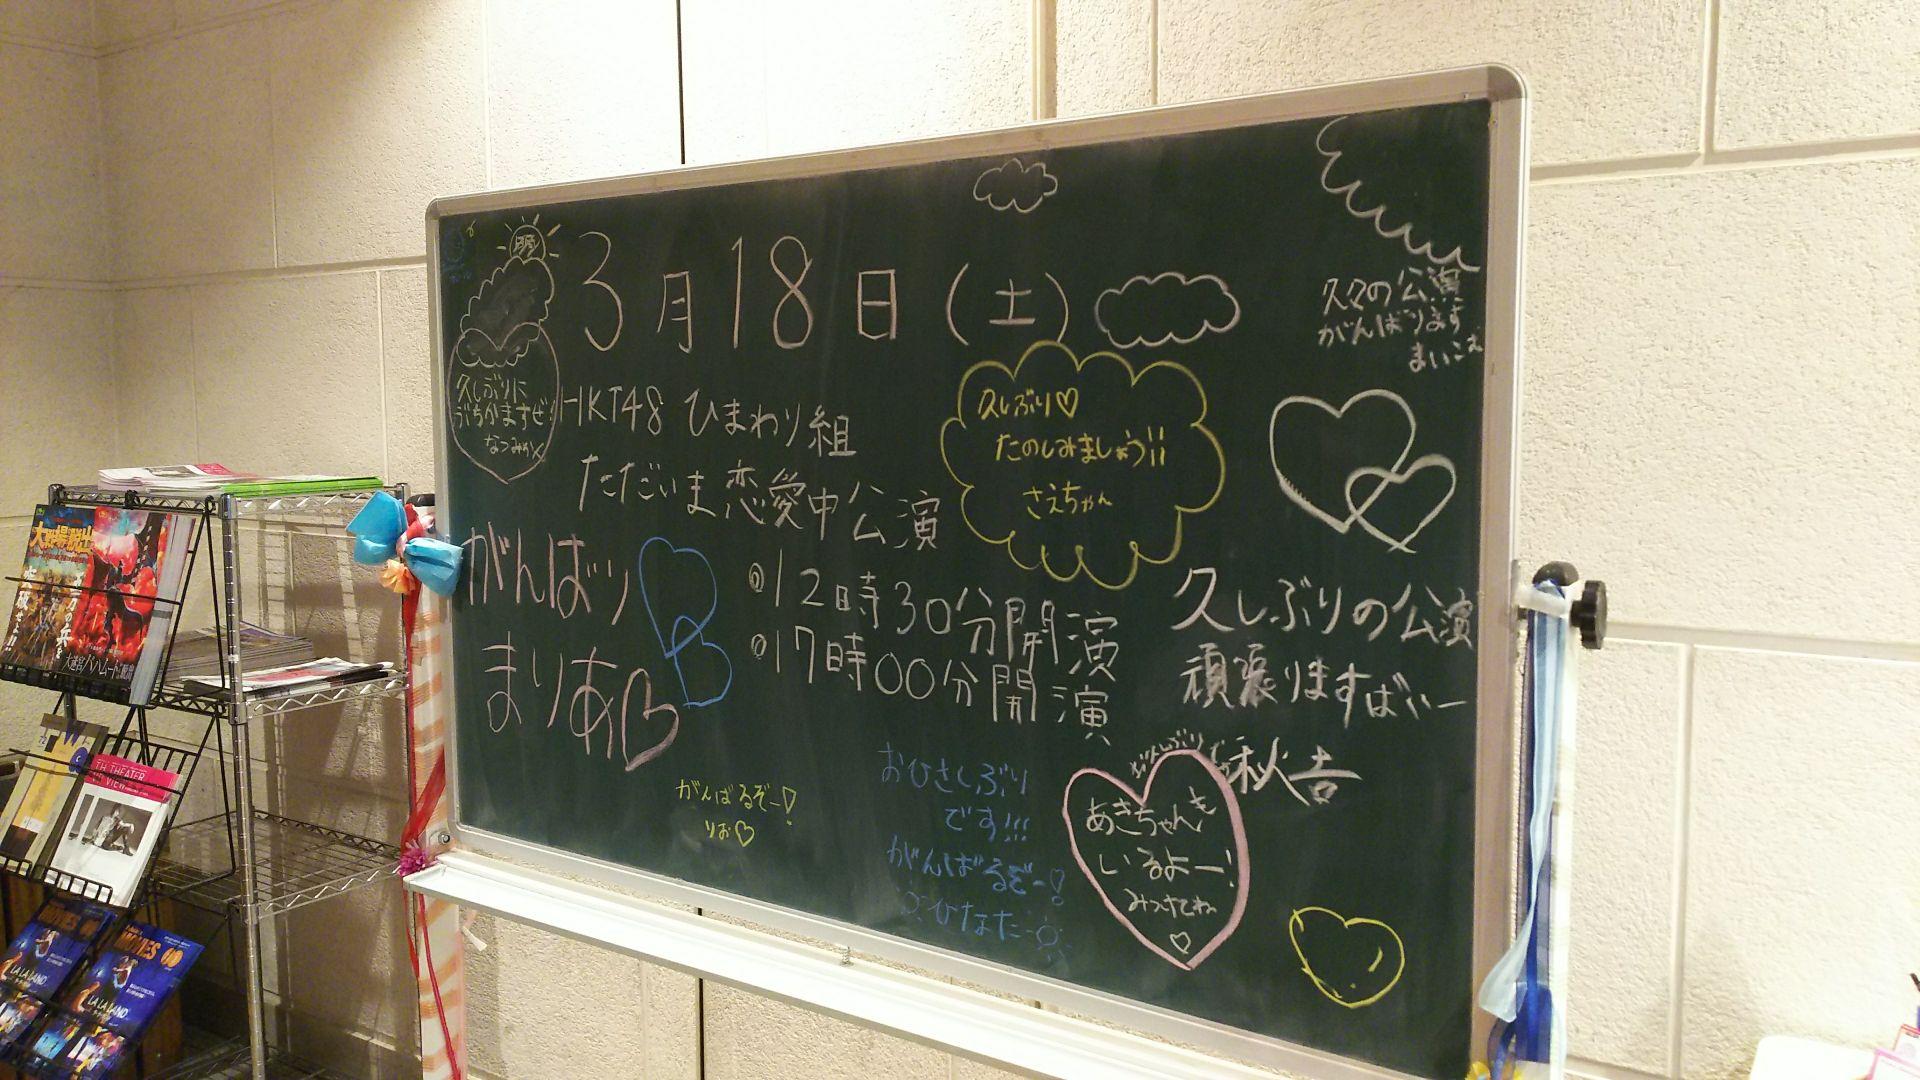 3月18日(土)
久しぶりに
ぶちかますぜ!
なつみかん
HKT48 ひまわり組
ただいま恋愛中公演
久しぶり♡
たのしみましょう!!
さえちゃん
久々の公演
がんばります
まいこむ
がんばり
まりあ♡
12時30分開演
17時00分開演
久しぶりの公演
頑張りますばいー
秋吉
がんばるぞー!
りお♡
おひさしぶり
です!!!
がんばるぞー!
ひなた
おひさしぶり
あきちゃんも
いるよー!
みつけてね
♡
大戦場脱出
大迷宮バハムート
TH THEATER
VIEW
MOVIES
LA LA LAND
MOVIES
LA LA LAND